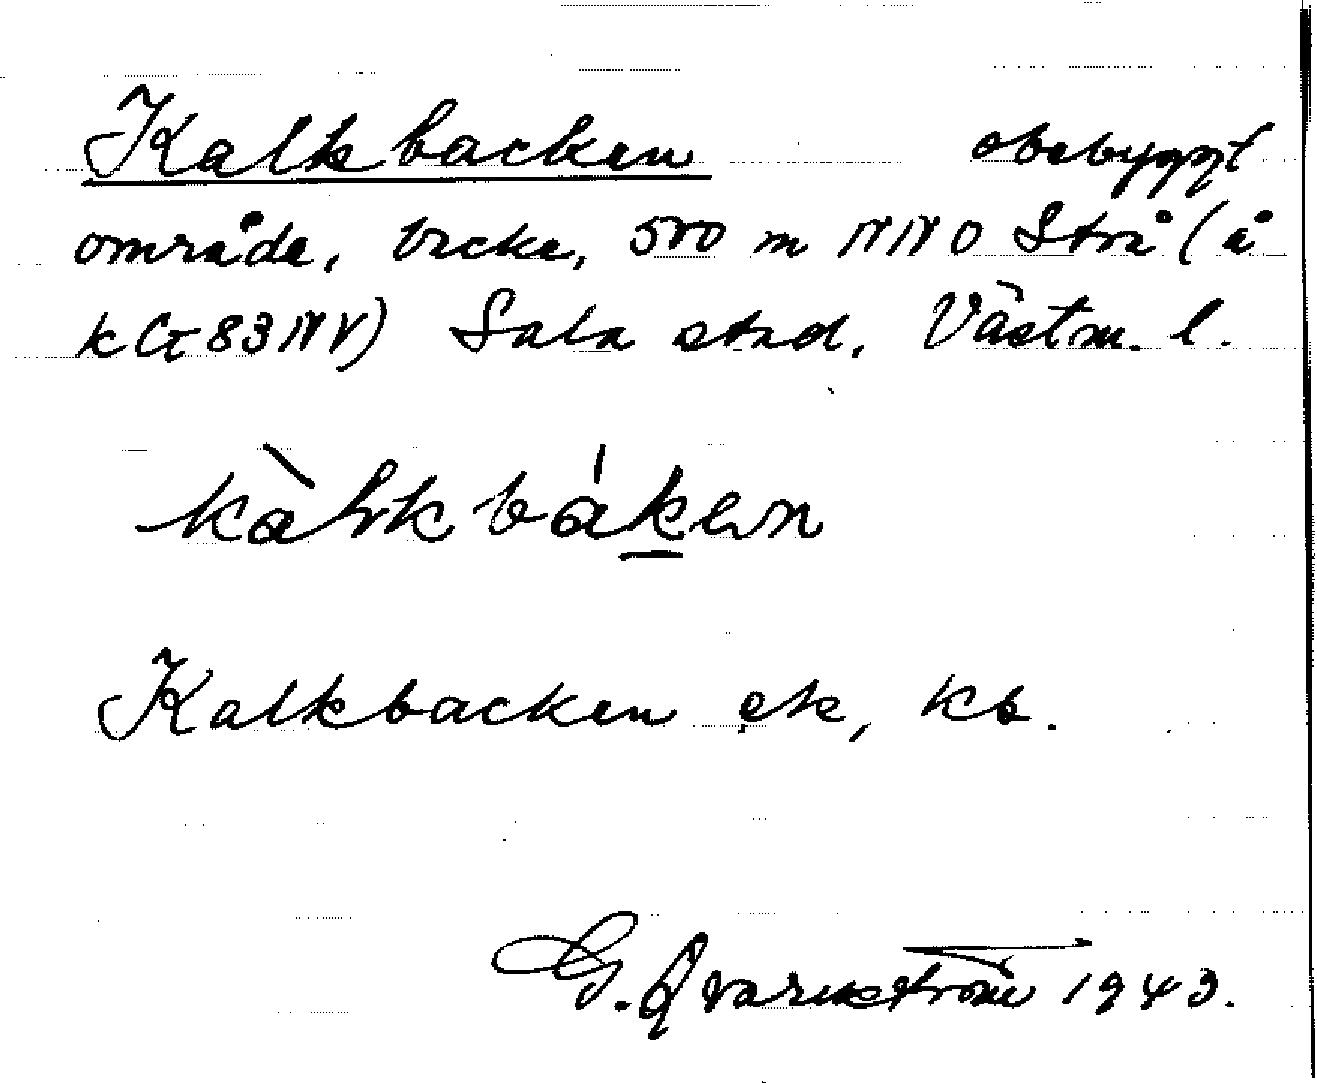 Kalkbacken obebyggt
område, backe, 500 m NNO Strå (å
k G 83 NV) Sala stad, Västm. l.
kàlkbákən
Kalkbacken ek, kb.
G. Qvarnström 1943.